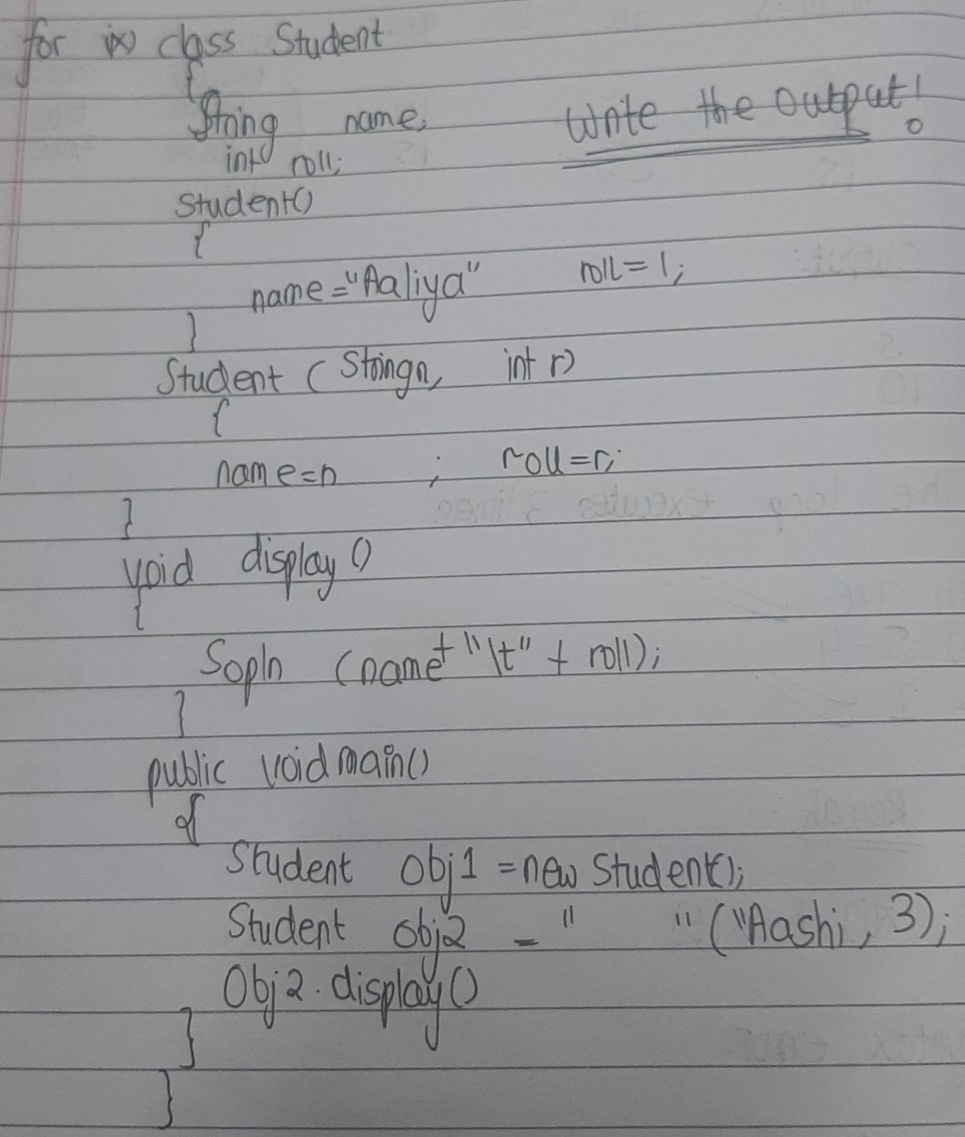 for class Student
{
String name;
Write the output!
int roll;
Student()
{
name="Aaliya" roll=1;
}
Student (String n, int r)
{
name=n ; roll=r;
}
void display ()
{
Sopln (name+ "\t" + roll);
}
public void main()
{
Student obj1 = new Student();
Student obj2 = " " ("Aashi, 3);
Obj2.display()
}
}